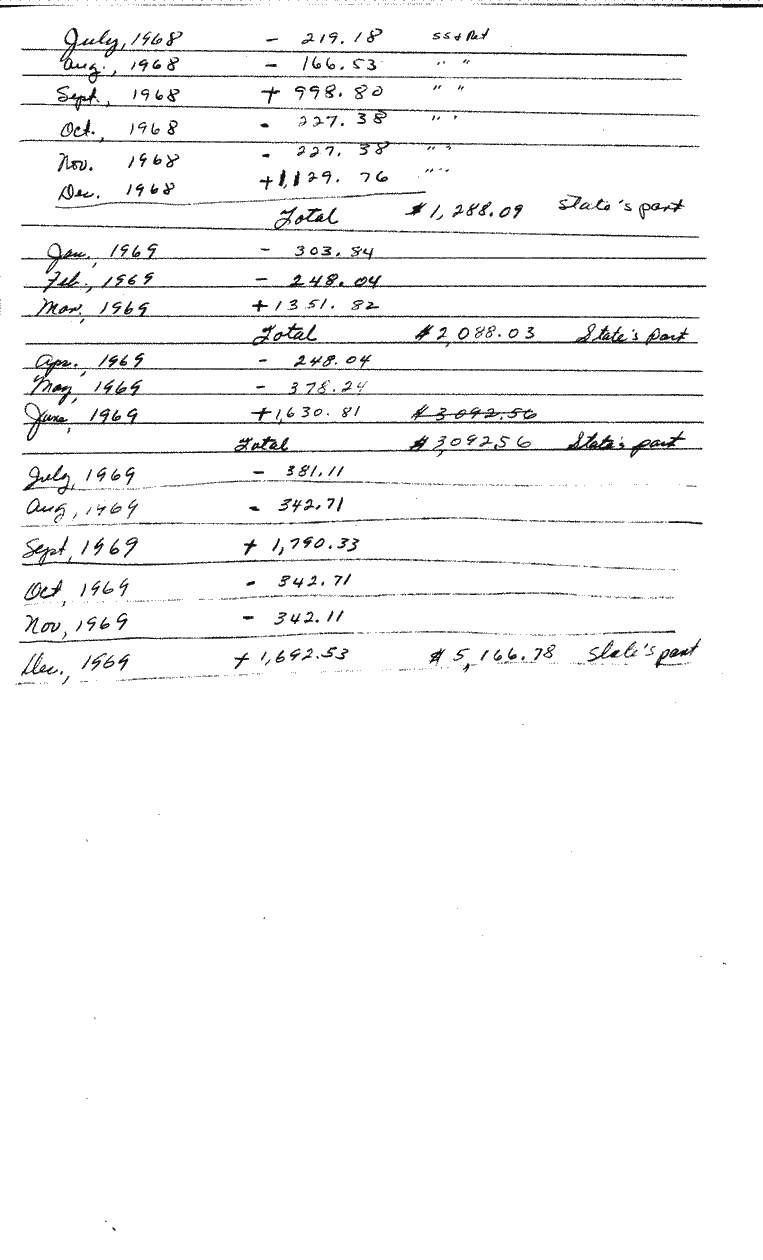 July, 1968 - 219.18 SS & Ret
Aug., 1968 - 166.53 " "
Sept., 1968 + 998.80 " "
Oct., 1968 - 227.38 " "
Nov. 1968 - 227.38 " "
Dec. 1968 +1,129.76 " "
Total $1,288.09 State's part
Jan., 1969 - 303.84
Feb., 1969 - 248.04
Mar, 1969 +1351.82
Total $2,088.03 State's part
Apr., 1969 - 248.04
May, 1969 - 378.24
June, 1969 +1,630.81 $3092.56
Total $3,092.56 State's part
July, 1969 - 381.11
Aug, 1969 - 342.71
Sept, 1969 + 1,790.33
Oct, 1969 - 342.71
Nov, 1969 - 342.11
Dec., 1969 + 1,692.53 $5,166.78 State's part